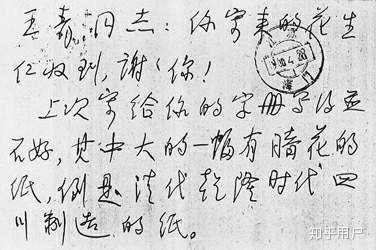 王嘉同志：你寄来的花生
仁收到，谢谢你！
上次寄给你的字册写得並
不好，其中大的一幅有暗花的
纸，倒是清代乾隆时代四
川制造的纸。
知乎用户